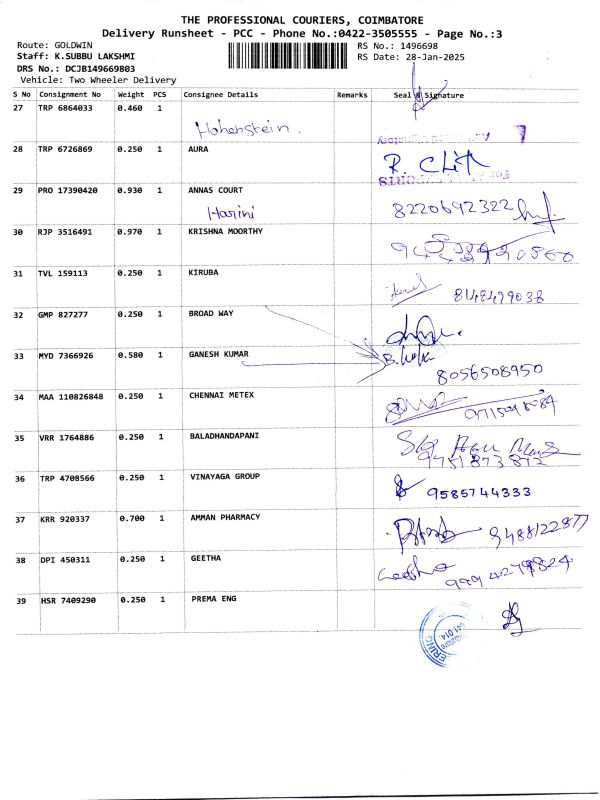 THE PROFESSIONAL COURIERS, COIMBATORE
Delivery Runsheet - PCC - Phone No.:0422-3505555 - Page No.:3
Route: GOLDWIN
RS No.: 1496698
Staff: K.SUBBU LAKSHMI
RS Date: 28-Jan-2025
DRS No.: DCJB149669803
Vehicle: Two Wheeler Delivery
S No Consignment No Weight PCS Consignee Details Remarks Seal & Signature
27 TRP 6864033 0.460 1
Hohenstein.
28 TRP 6726869 0.250 1 AURA
29 PRO 17390420 0.930 1 ANNAS COURT
Harini 8220692322
30 RJP 3516491 0.970 1 KRISHNA MOORTHY
31 TVL 159113 0.250 1 KIRUBA
8148479038
32 GMP 827277 0.250 1 BROAD WAY
33 MYD 7366926 0.580 1 GANESH KUMAR
8056508950
34 MAA 110826848 0.250 1 CHENNAI METEX
35 VRR 1764886 0.250 1 BALADHANDAPANI
9751873872
36 TRP 4708566 0.250 1 VINAYAGA GROUP
9585744333
37 KRR 920337 0.700 1 AMMAN PHARMACY
9488122877
38 DPI 450311 0.250 1 GEETHA
Geetha 9994279824
39 HSR 7409290 0.250 1 PREMA ENG
641 014